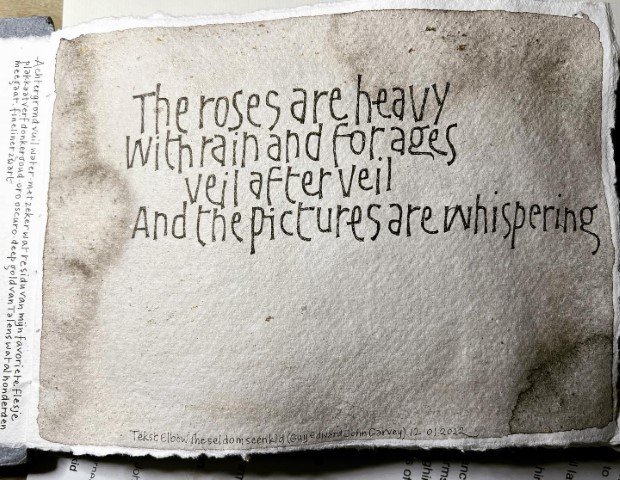 The roses are heavy
With rain and for ages
veil after veil
And the pictures are whispering
Tekst Elbow The seldom seen kid (Guy Edward John Garvey) 12 01 2022
Achtergrond vuil water met zeker wat residu van mijn favoriete flesje
plakkaatverf donkergoud oro oscuro deep gold van Talens wat al honderden
meegaat. fineliner zwart